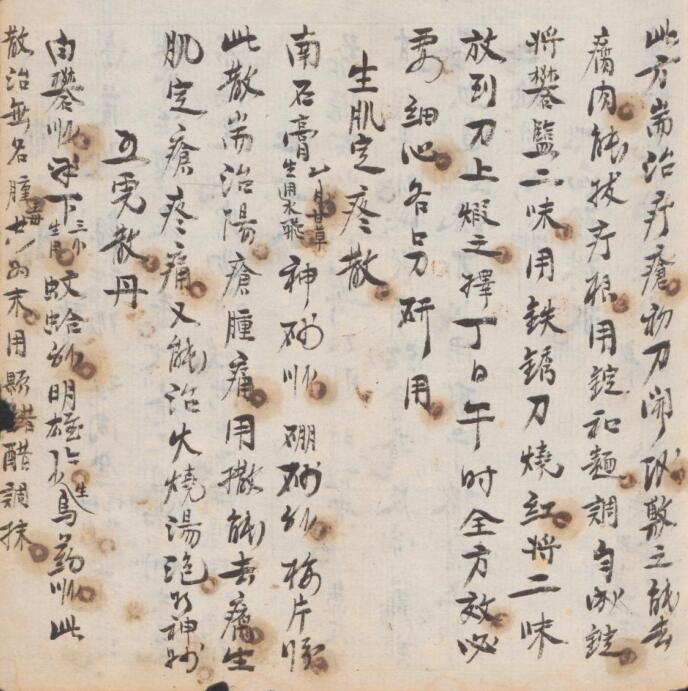 此方耑治疔瘡初刀開破敷之能去
腐肉能拔疔根用錠和麵調自成錠
將礬盬二味用鉄銹刀燒紅將二味
放到刀上煆之擇丁日午时全方效必
要細心各另研用
生肌定疼散
南石膏 生用水飛 甘草 神砂 硼砂 梅片
此散耑治陽瘡腫痛用撒能去腐生
肌定瘡疼痛又能治火燒湯泡 神効
五虎散丹
白礬 下 生用 蚊蛤 明雄 生 烏葯 此
散治無名腫毒 共 末用 醋調抹